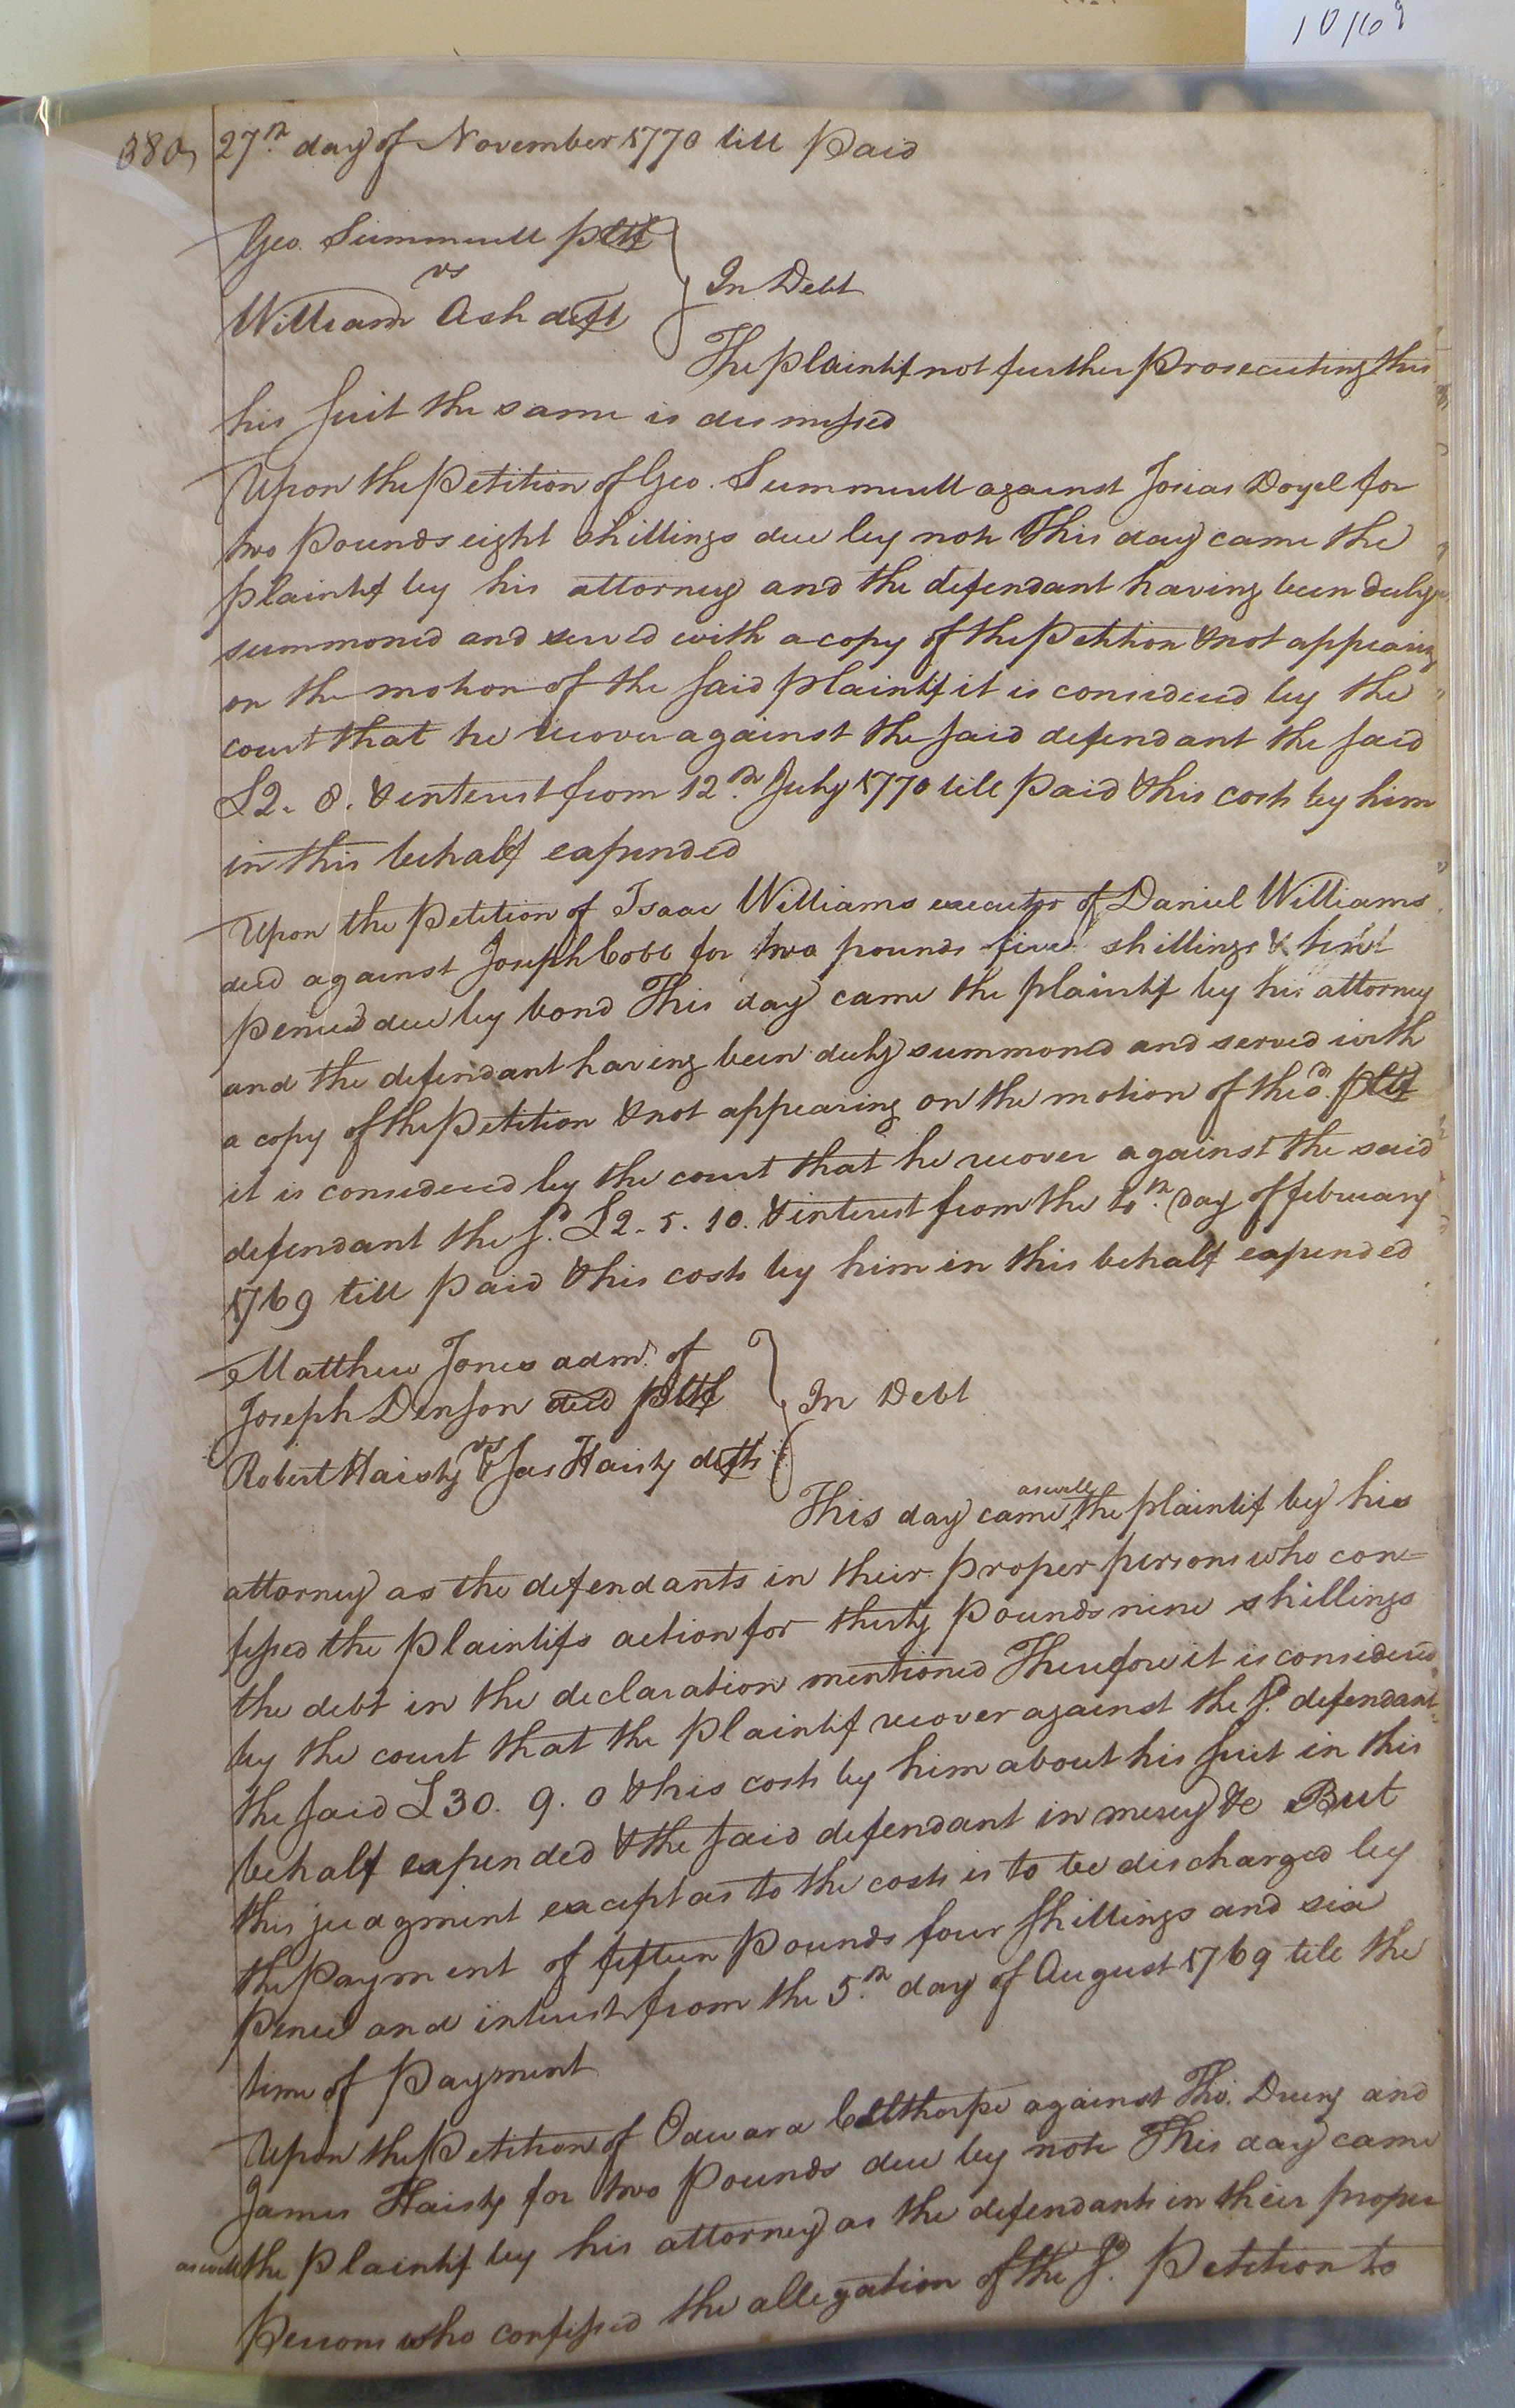 10169
380, 27th day of November 1770 till Paid
Geo. Summerell pltf
vs
William Ash deft
In Debt
The plaintif not further Prosecuting this
his suit the same is dismissed
Upon the Petition of Geo. Summerell against Josias Doyel for
two Pounds eight shillings due by note This day came the
plaintif by his attorney and the defendant having been duly
summoned and served with a copy of the Petition & not appearing
on the motion of the said plaintif it is considered by the
court that he recover against the said defendant the said
£2. 8. & interest from 12th July 1770 till Paid & his costs by him
in this behalf expended
Upon the Petition of Isaac Williams executor of Daniel Williams
decd against Joseph Cobb for two pounds five shillings &
Pence due by bond This day came the plaintif by his attorney
and the defendant having been duly summoned and served with
a copy of the Petition & not appearing on the motion of the sd. pltf
it is considered by the court that he recover against the said
defendant the sd. £2. 5. 10. & interest from the day of february
1769 till Paid & his costs by him in this behalf expended
Matthew Jones admr. of
Joseph Denson decd pltf
vs
Robert Haisty & Jas Haisty defts
In Debt
as well
This day came ^ the plaintif by his
attorney as the defendants in their proper persons who con=
fessed the plaintifs action for thirty Pounds nine shillings
the debt in the declaration mentioned Therefore it is considered
by the court that the Plaintif recover against the sd. defendants
the said £30. 9. 0 & his costs by him about his suit in this
behalf expended & the said defendant in mercy &c But
this judgment except as to the costs is to be discharged by
the Payment of fifteen Pounds four shillings and six
Pence and interest from the 5th day of August 1769 till the
time of Payment
Upon the Petition of Edward Callthorpe against Tho. Drury and
James Haisty for two Pounds due by note This day came
as well the Plaintif by his attorney as the defendants in their proper
Persons who confessed the allegation of the sd. Petition to